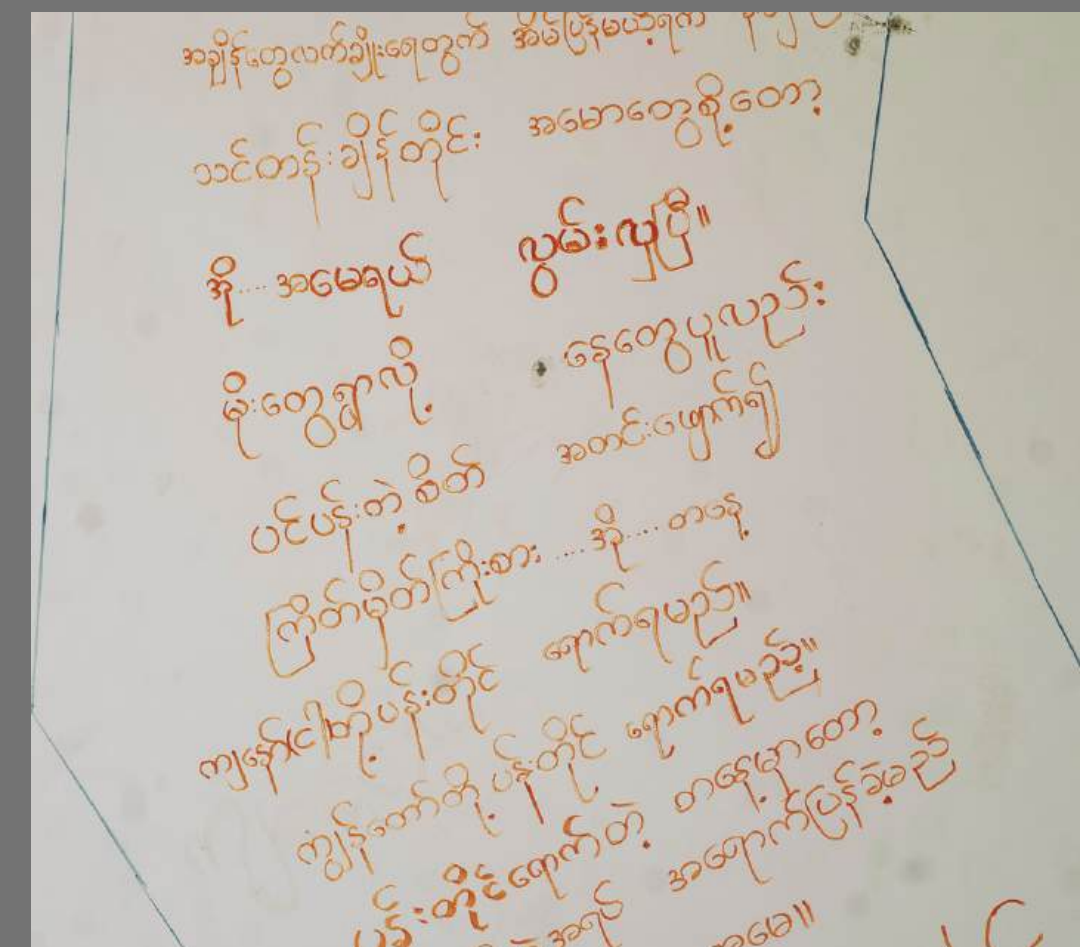 အချိန်တွေလက်ချိုးရေတွက် အိမ်ပြန်မယ့်ရက်
သင်တန်းချိန်တိုင်း အမောတွေစို့တော့
အို.... အမေရယ် လွမ်းလှပြီ။
မိုးတွေရွာလို့ နေတွေပူလည်း
ပင်ပန်းတဲ့စိတ် အတင်းဖျောက်၍
ကြိတ်မှိတ်ကြိုးစား .... အို.... တနေ့
ကျနော်(ငါ)တို့ပန်းတိုင် ရောက်ရမည်။
ကျွန်တော်တို့ ပန်းတိုင် ရောက်ရမည့်။
ပန်းတိုင်ရောက်တဲ့ တနေ့မှာတော့
အရပ် အရောက်ပြန်ခဲ့မည်
အမေ။